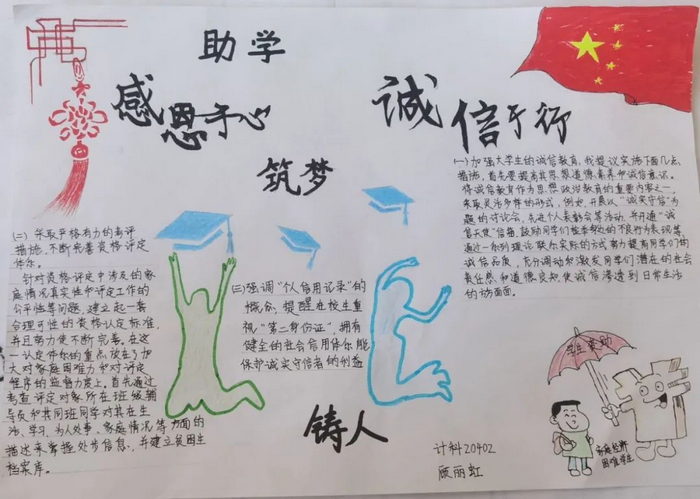 助学
感恩于心
诚信于行
筑梦
(一)加强大学生的诚信教育,我提议实施下面几点
措施,首先要提高其思想道德素养和诚信意识。
将诚信教育作为思想政治教育的重要内容之一,
采取灵活多样的形式,例如,开展以“诚实守信”为
题的讨论会,先进个人表彰会等活动,并开通“诚
信天使”信箱,鼓励同学们检举身边的不良行为表现等,
通过一系列理论联系实际的方式努力提高同学们的
诚信品质,充分调动和激发同学们潜在的社会
责任感和道德良知,使诚信渗透到日常生活
的方方面面。
(二)采取严格有力的考评
措施,不断完善资格评定
体系。
针对资格评定中涉及的家
庭情况真实性和评定工作的
公平性等问题,建立起一套
合理可性的资格认定标准,
并且努力使不断完善。在这
一认定体系的重点放在了加
大对家庭困难力和对评定
程序的监督力度上。首先通过
考查评定对象所在班级辅
导员和共同班同学对其在生
活、学习、为人处事、家庭情况等方面的
描述来掌握处步信息,并建立贫困生
档案库。
(三)强调“个人信用记录”的
概念,提醒在校生重
视“第二身份证”,拥有
健全的社会信用体系能
保护诚实守信者的利益
学生资助
家庭经济
困难学生
铸人
计科20402
顾丽虹